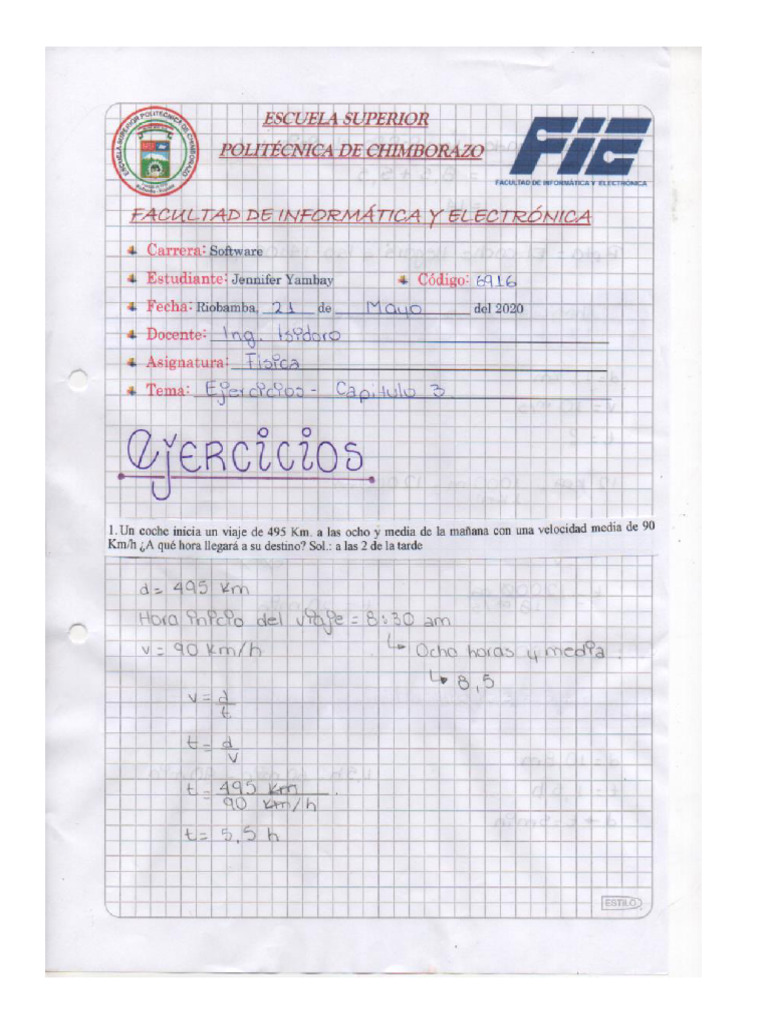 ESCUELA SUPERIOR
POLITÉCNICA DE CHIMBORAZO
FIE
FACULTAD DE INFORMÁTICA Y ELECTRÓNICA
ESCUELA SUPERIOR POLITECNICA DE CHIMBORAZO
FACULTAD DE INFORMÁTICA Y ELECTRÓNICA
Carrera: Software
Estudiante: Jennifer Yambay Código: 6916
Fecha: Riobamba, 21 de Mayo del 2020
Docente: Ing. Isidoro
Asignatura: Fisica
Tema: Ejercicios - Capitulo 3.
EJERCICIOS
1. Un coche inicia un viaje de 495 Km. a las ocho y media de la mañana con una velocidad media de 90
Km/h ¿A qué hora llegará a su destino? Sol.: a las 2 de la tarde
d = 495 Km
Hora inicio del viaje = 8:30 am
v = 90 Km/h ↳ Ocho horas y media.
↳ 8,5
v = d
t
t = d
v
t = 495 Km
90 Km/h
t = 5,5 h
ESTILO